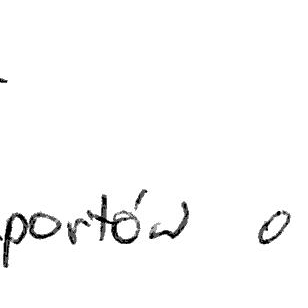 portów o